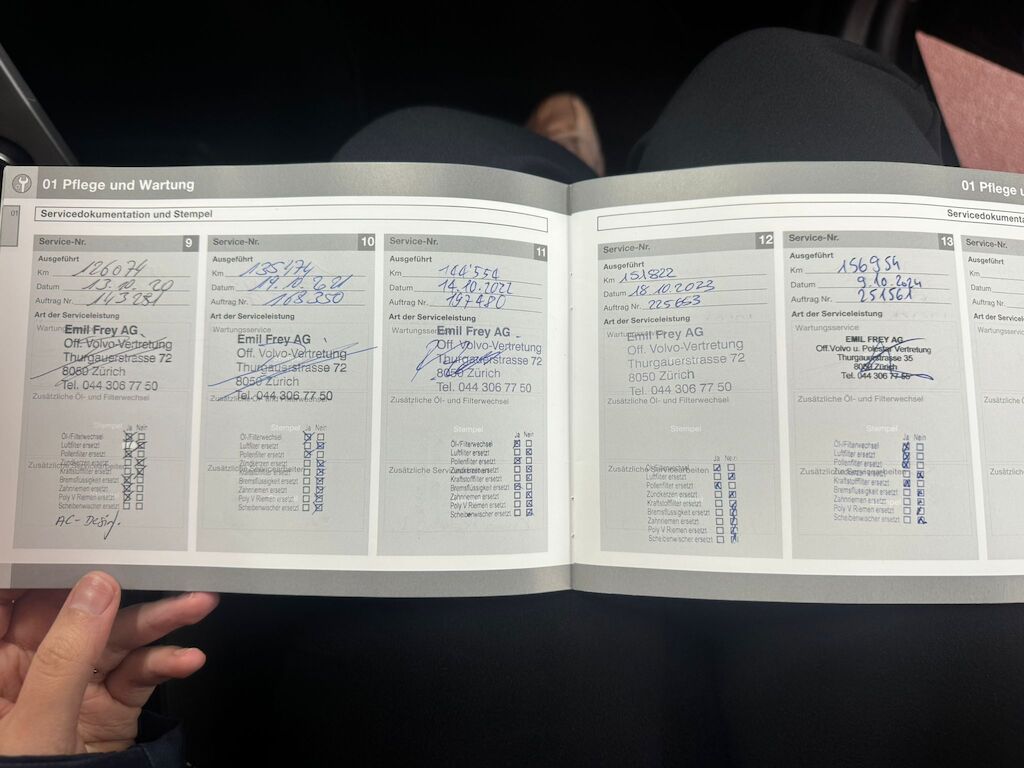 01 Pflege und Wartung
01
Servicedokumentation und Stempel
Service-Nr. 9
Ausgeführt
Km 126074
Datum 13.10.20
Auftrag Nr. 143281
Art der Serviceleistung
Wartungsservice
Emil Frey AG
Off. Volvo-Vertretung
Thurgauerstrasse 72
8050 Zürich
Tel. 044 306 77 50
Zusätzliche Öl- und Filterwechsel
Stempel
Ja Nein
Öl-/Filterwechsel
Luftfilter ersetzt
Pollenfilter ersetzt
Zündkerzen ersetzt
Zusätzliche Servicearbeiten
Kraftstofffilter ersetzt
Bremsflüssigkeit ersetzt
Zahnriemen ersetzt
Poly V Riemen ersetzt
Scheibenwischer ersetzt
AC-Desinf.
Service-Nr. 10
Ausgeführt
Km 135474
Datum 19.10.2021
Auftrag Nr. 168350
Art der Serviceleistung
Wartungsservice
Emil Frey AG
Off. Volvo-Vertretung
Thurgauerstrasse 72
8050 Zürich
Tel. 044 306 77 50
Zusätzliche Öl- und Filterwechsel
Stempel
Ja Nein
Öl-/Filterwechsel
Luftfilter ersetzt
Pollenfilter ersetzt
Zündkerzen ersetzt
Zusätzliche Servicearbeiten
Kraftstofffilter ersetzt
Bremsflüssigkeit ersetzt
Zahnriemen ersetzt
Poly V Riemen ersetzt
Scheibenwischer ersetzt
Service-Nr. 11
Ausgeführt
Km 144'554
Datum 14.10.2022
Auftrag Nr. 197480
Art der Serviceleistung
Wartungsservice
Emil Frey AG
Off. Volvo-Vertretung
Thurgauerstrasse 72
8050 Zürich
Tel. 044 306 77 50
Zusätzliche Öl- und Filterwechsel
Stempel
Ja Nein
Öl-/Filterwechsel
Luftfilter ersetzt
Pollenfilter ersetzt
Zündkerzen ersetzt
Zusätzliche Servicearbeiten
Kraftstofffilter ersetzt
Bremsflüssigkeit ersetzt
Zahnriemen ersetzt
Poly V Riemen ersetzt
Scheibenwischer ersetzt
01 Pflege u
Servicedokumenta
Service-Nr. 12
Ausgeführt
Km 151822
Datum 18.10.2023
Auftrag Nr. 225663
Art der Serviceleistung
Wartungsservice
Emil Frey AG
Off. Volvo-Vertretung
Thurgauerstrasse 72
8050 Zürich
Tel. 044 306 77 50
Zusätzliche Öl- und Filterwechsel
Ja Nein
Öl-/Filterwechsel
Zusätzliche Servicearbeiten
Luftfilter ersetzt
Pollenfilter ersetzt
Zündkerzen ersetzt
Kraftstofffilter ersetzt
Bremsflüssigkeit ersetzt
Zahnriemen ersetzt
Poly V Riemen ersetzt
Scheibenwischer ersetzt
Service-Nr. 13
Ausgeführt
Km 156954
Datum 9.10.2024
Auftrag Nr. 251561
Art der Serviceleistung
Wartungsservice
EMIL FREY AG
Off. Volvo u. Polestar Vertretung
Thurgauerstrasse 35
8050 Zürich
Tel. 044 306 77 55
Zusätzliche Öl- und Filterwechsel
Stempel
Ja Nein
Öl-/Filterwechsel
Luftfilter ersetzt
Pollenfilter ersetzt
Zusätzliche Servicearbeiten
Zündkerzen ersetzt
Kraftstofffilter ersetzt
Bremsflüssigkeit ersetzt
Zahnriemen ersetzt
Poly V Riemen ersetzt
Scheibenwischer ersetzt
Service-Nr.
Ausgeführt
Km
Datum
Auftrag Nr.
Art der Serv
Wartungsse
Zusätzliche
Zusätzliche